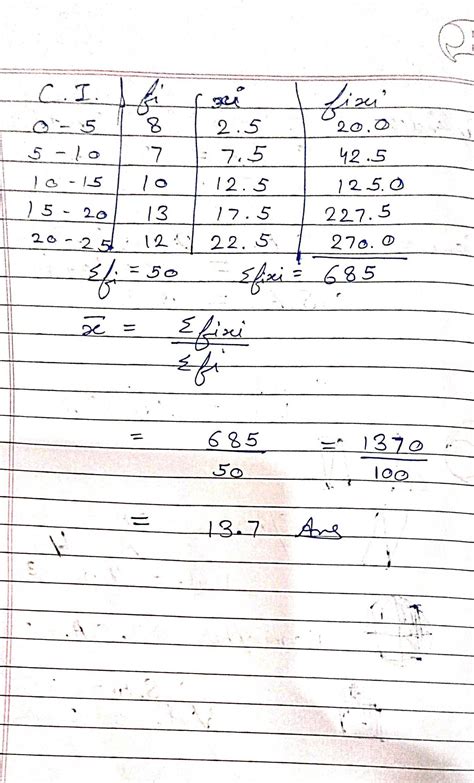 C.I. fi xi fixi
0-5 8 2.5 20.0
5-10 7 7.5 42.5
10-15 10 12.5 125.0
15-20 13 17.5 227.5
20-25 12 22.5 270.0
Σfi = 50 Σfixi = 685
x̄ = Σfixi
Σfi
= 685 = 1370
50 100
= 13.7 Ans